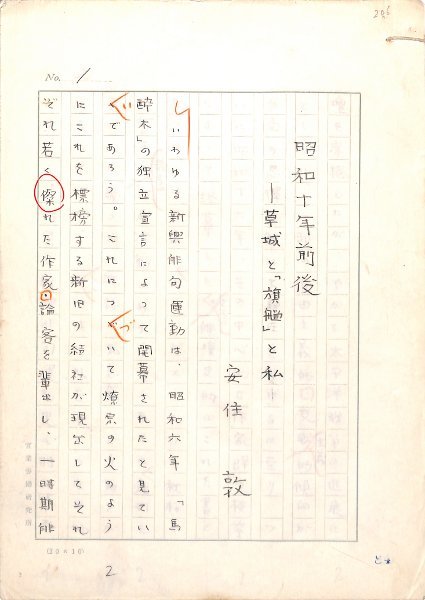 No. 1
昭和十年前後
―草城と「旗艦」と私
安住 敦
いわゆる新興俳句運動は、昭和六年「馬
酔木」の独立宣言によって開幕されたと見てい
いであろう。これにつづいて燎原の火のよう
にこれを標榜する新旧の結社が現出してそれ
ぞれ若く傑れた作家・論客を輩出し、一時期俳
(20×10)
2